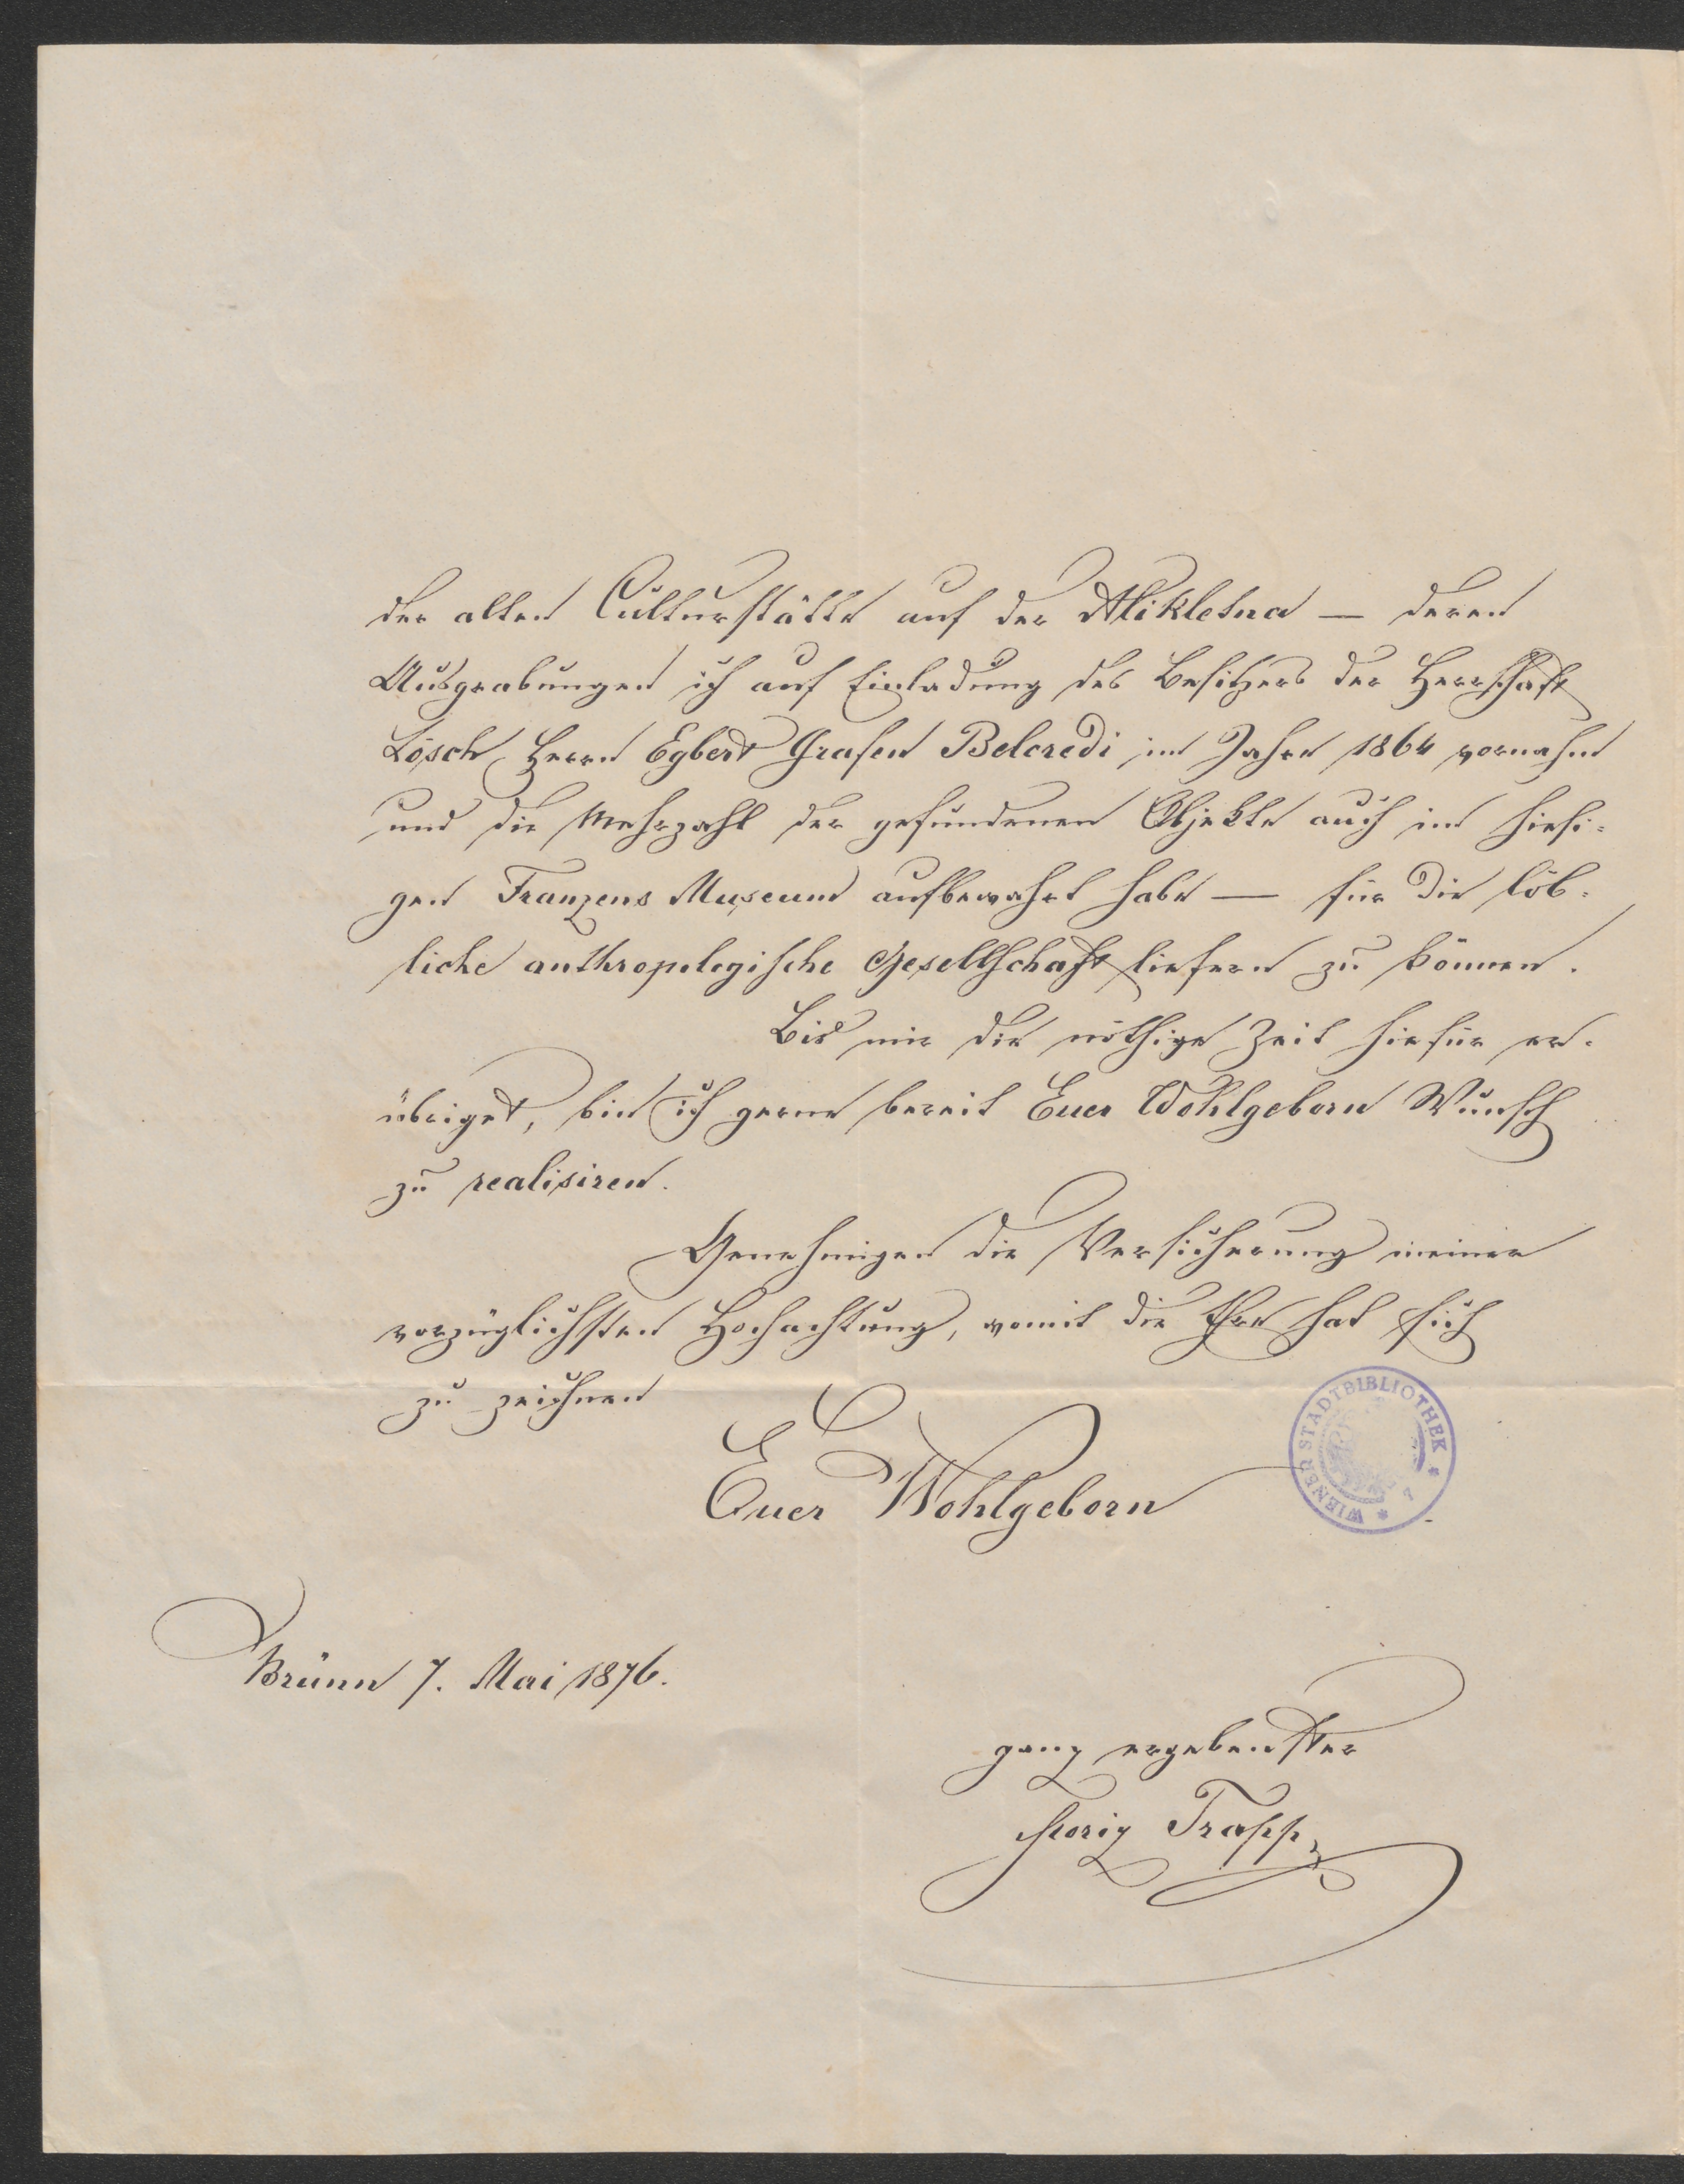 der alten Culturstätte auf der Mikletna — deren
Ausgrabungen ich auf Einladung des Besitzers der Herrschaft
Lösch Herrn Egbert Grafen Belcredi im Jahre 1864 vornahm
und die Mehrzahl der gefundenen Objekte auch im hiesi-
gen Franzens Museum aufbewahrt habe — für die löb-
liche anthropologische Gesellschaft liefern zu können.
Bis mir die nöthige Zeit hiefür er-
übriget, bin ich gerne bereit Euer Wohlgeborn Wunsch
zu realisiren.
Genehmigen die Versicherung meiner
vorzüglichsten Hochachtung, womit die Ehre hat sich
zu zeichnen
Euer Wohlgeborn
WIENER STADTBIBLIOTHEK
Brünn 7. Mai 1876.
ganz ergebenster
Moriz Trapp